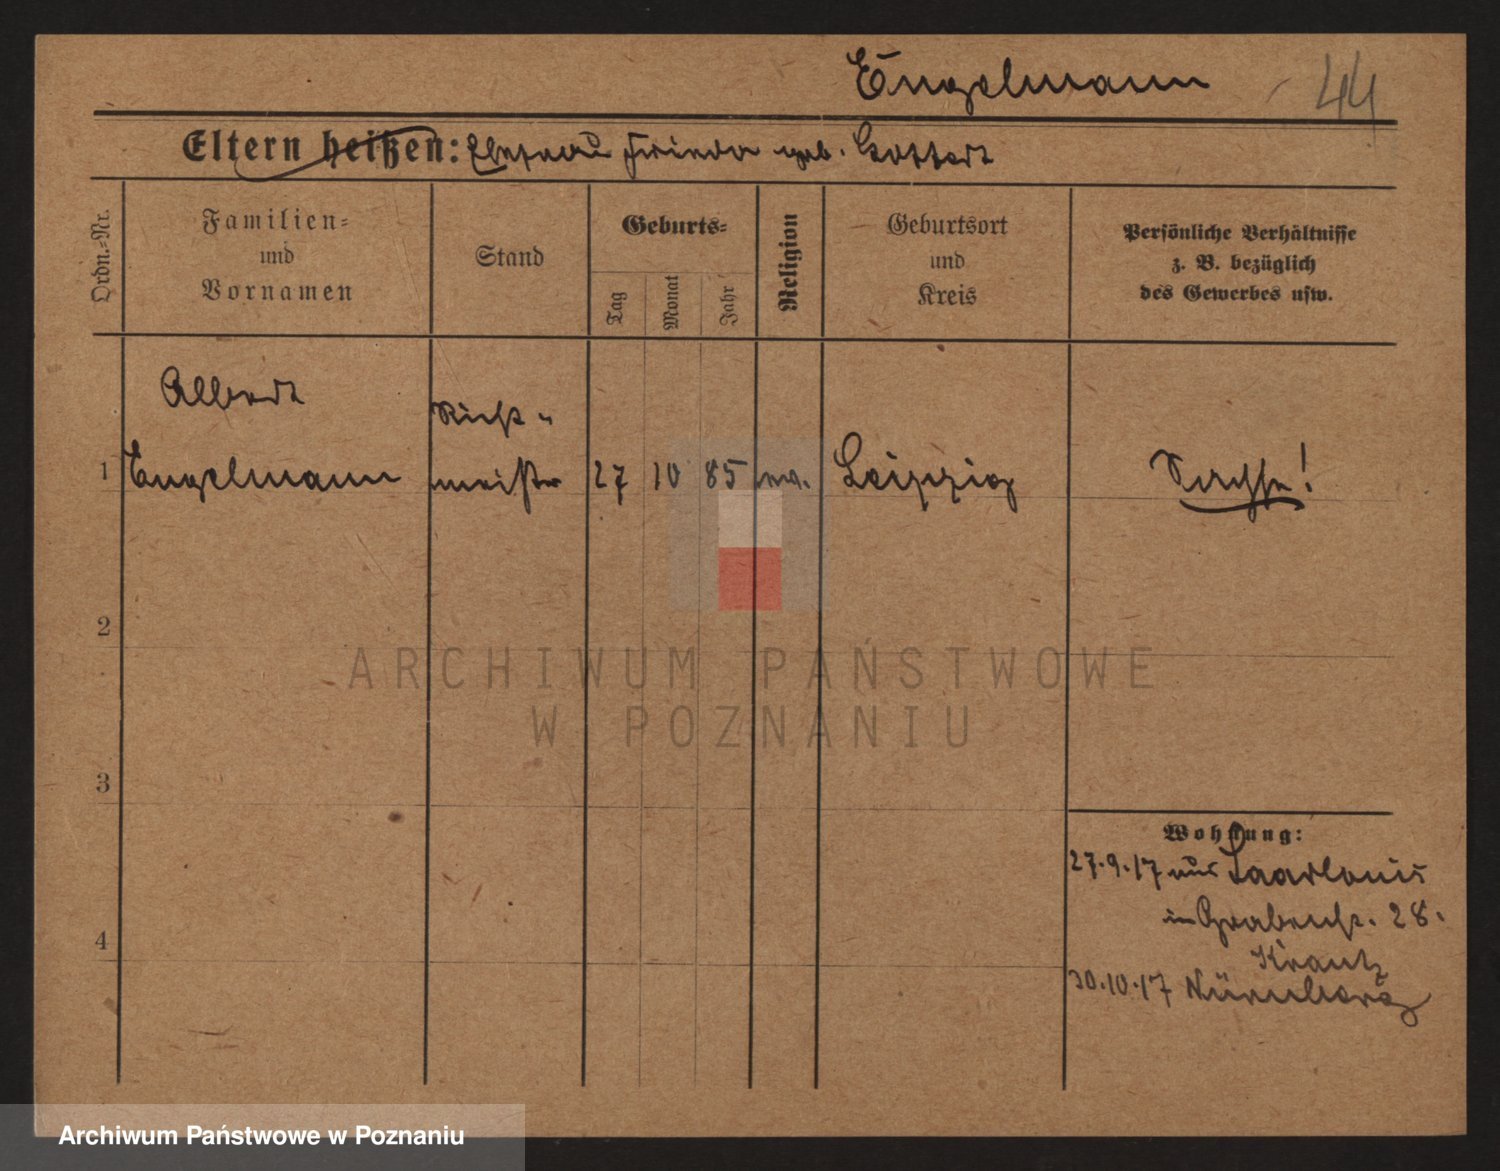 Engelmann 44
Eltern heißen: Ehefrau Frieda geb. Gottert
Ordn.=Nr.
Familien=
und
Vornamen
Stand
Geburts=
Tag
Monat
Jahr
Religion
Geburtsort
und
Kreis
Persönliche Verhältnisse
z. B. bezüglich
des Gewerbes usw.
Albert
1 Engelmann
meister
27 10 85 ev. Leipzig Sachse!
2
3
4
Wohnung:
27.9.17 aus Saarlouis
in Grabenstr. 28.
Krantz
30.10.17 Nürnberg
ARCHIWUM PAŃSTWOWE
W POZNANIU
Archiwum Państwowe w Poznaniu